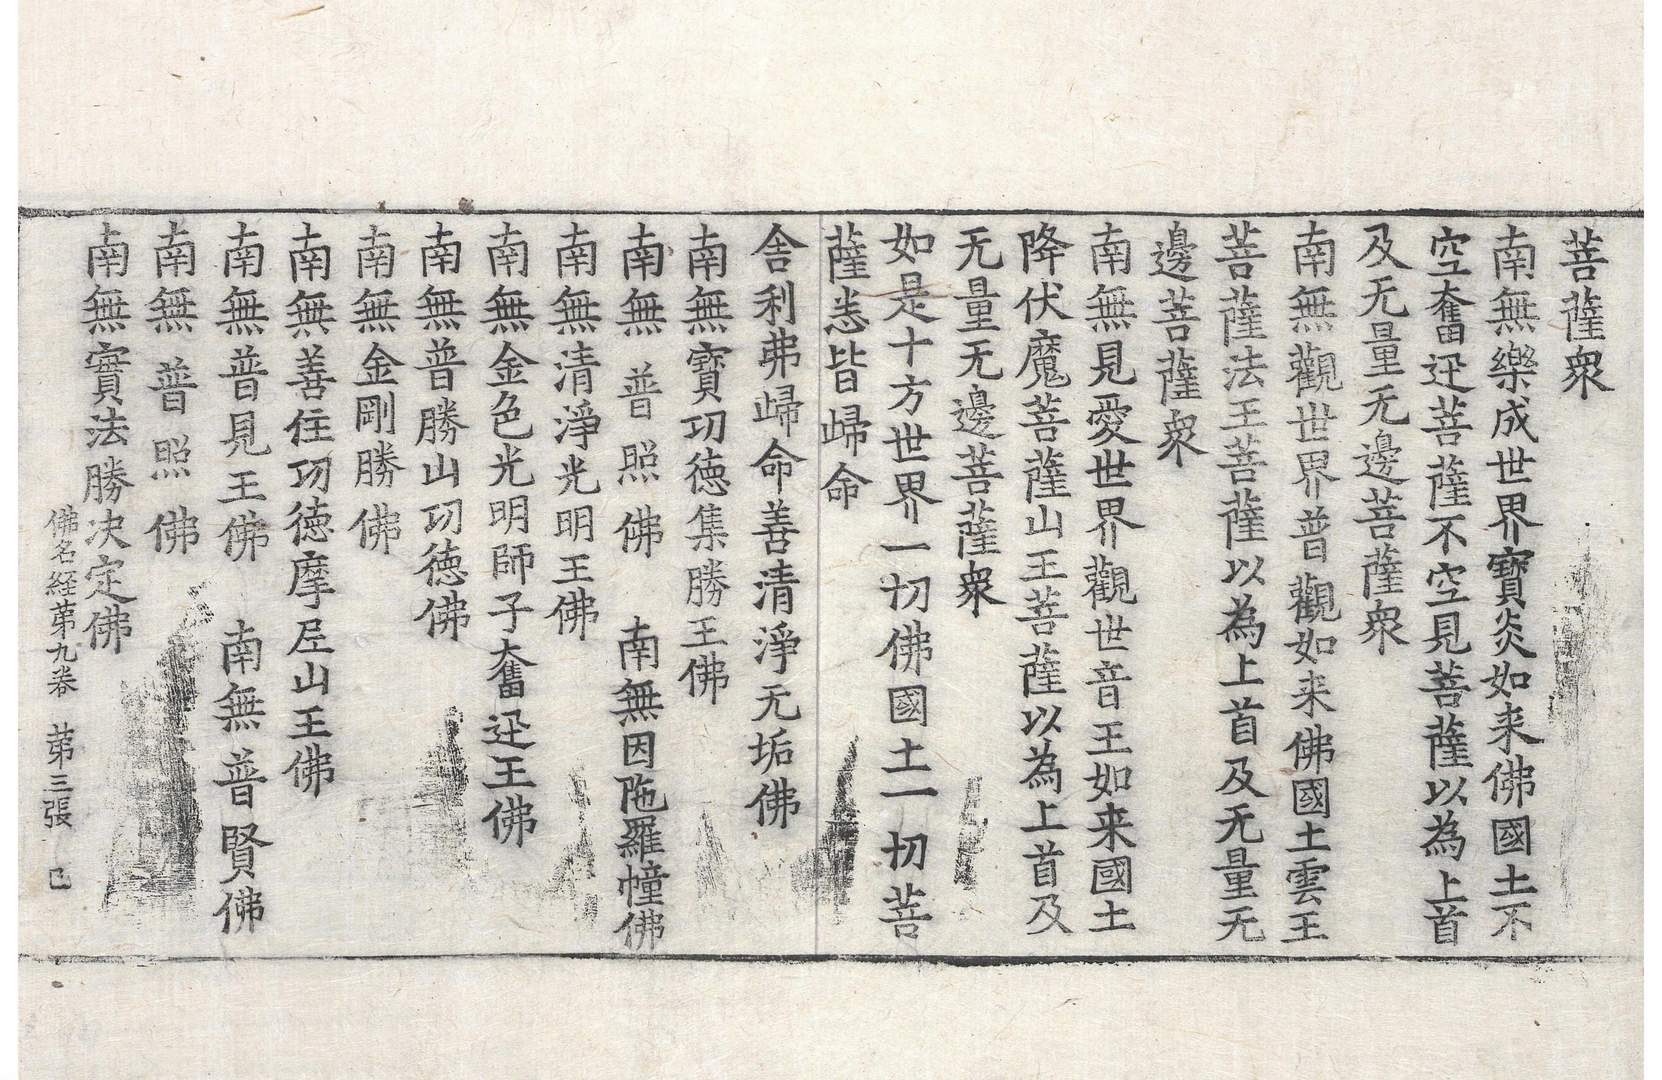 菩薩衆
南無樂成世界寶炎如来佛國土不
空奮迅菩薩不空見菩薩以為上首
及无量无邊菩薩衆
南無觀世界普觀如来佛國土雲王
菩薩法王菩薩以為上首及无量无
邊菩薩衆
南無見愛世界觀世音王如来國土
降伏魔菩薩山王菩薩以為上首及
无量无邊菩薩衆
如是十方世界一切佛國土一切菩
薩悉皆歸命
舎利弗歸命善清淨无垢佛
南無寶功徳集勝王佛
南無普照佛　南無因陁羅幢佛
南無清淨光明王佛
南無金色光明師子奮迅王佛
南無普勝山功徳佛
南無金剛勝佛
南無善住功徳摩尼山王佛
南無普見王佛　南無普賢佛
南無普照佛
南無實法勝决定佛
佛名経苐九卷　苐三張　己